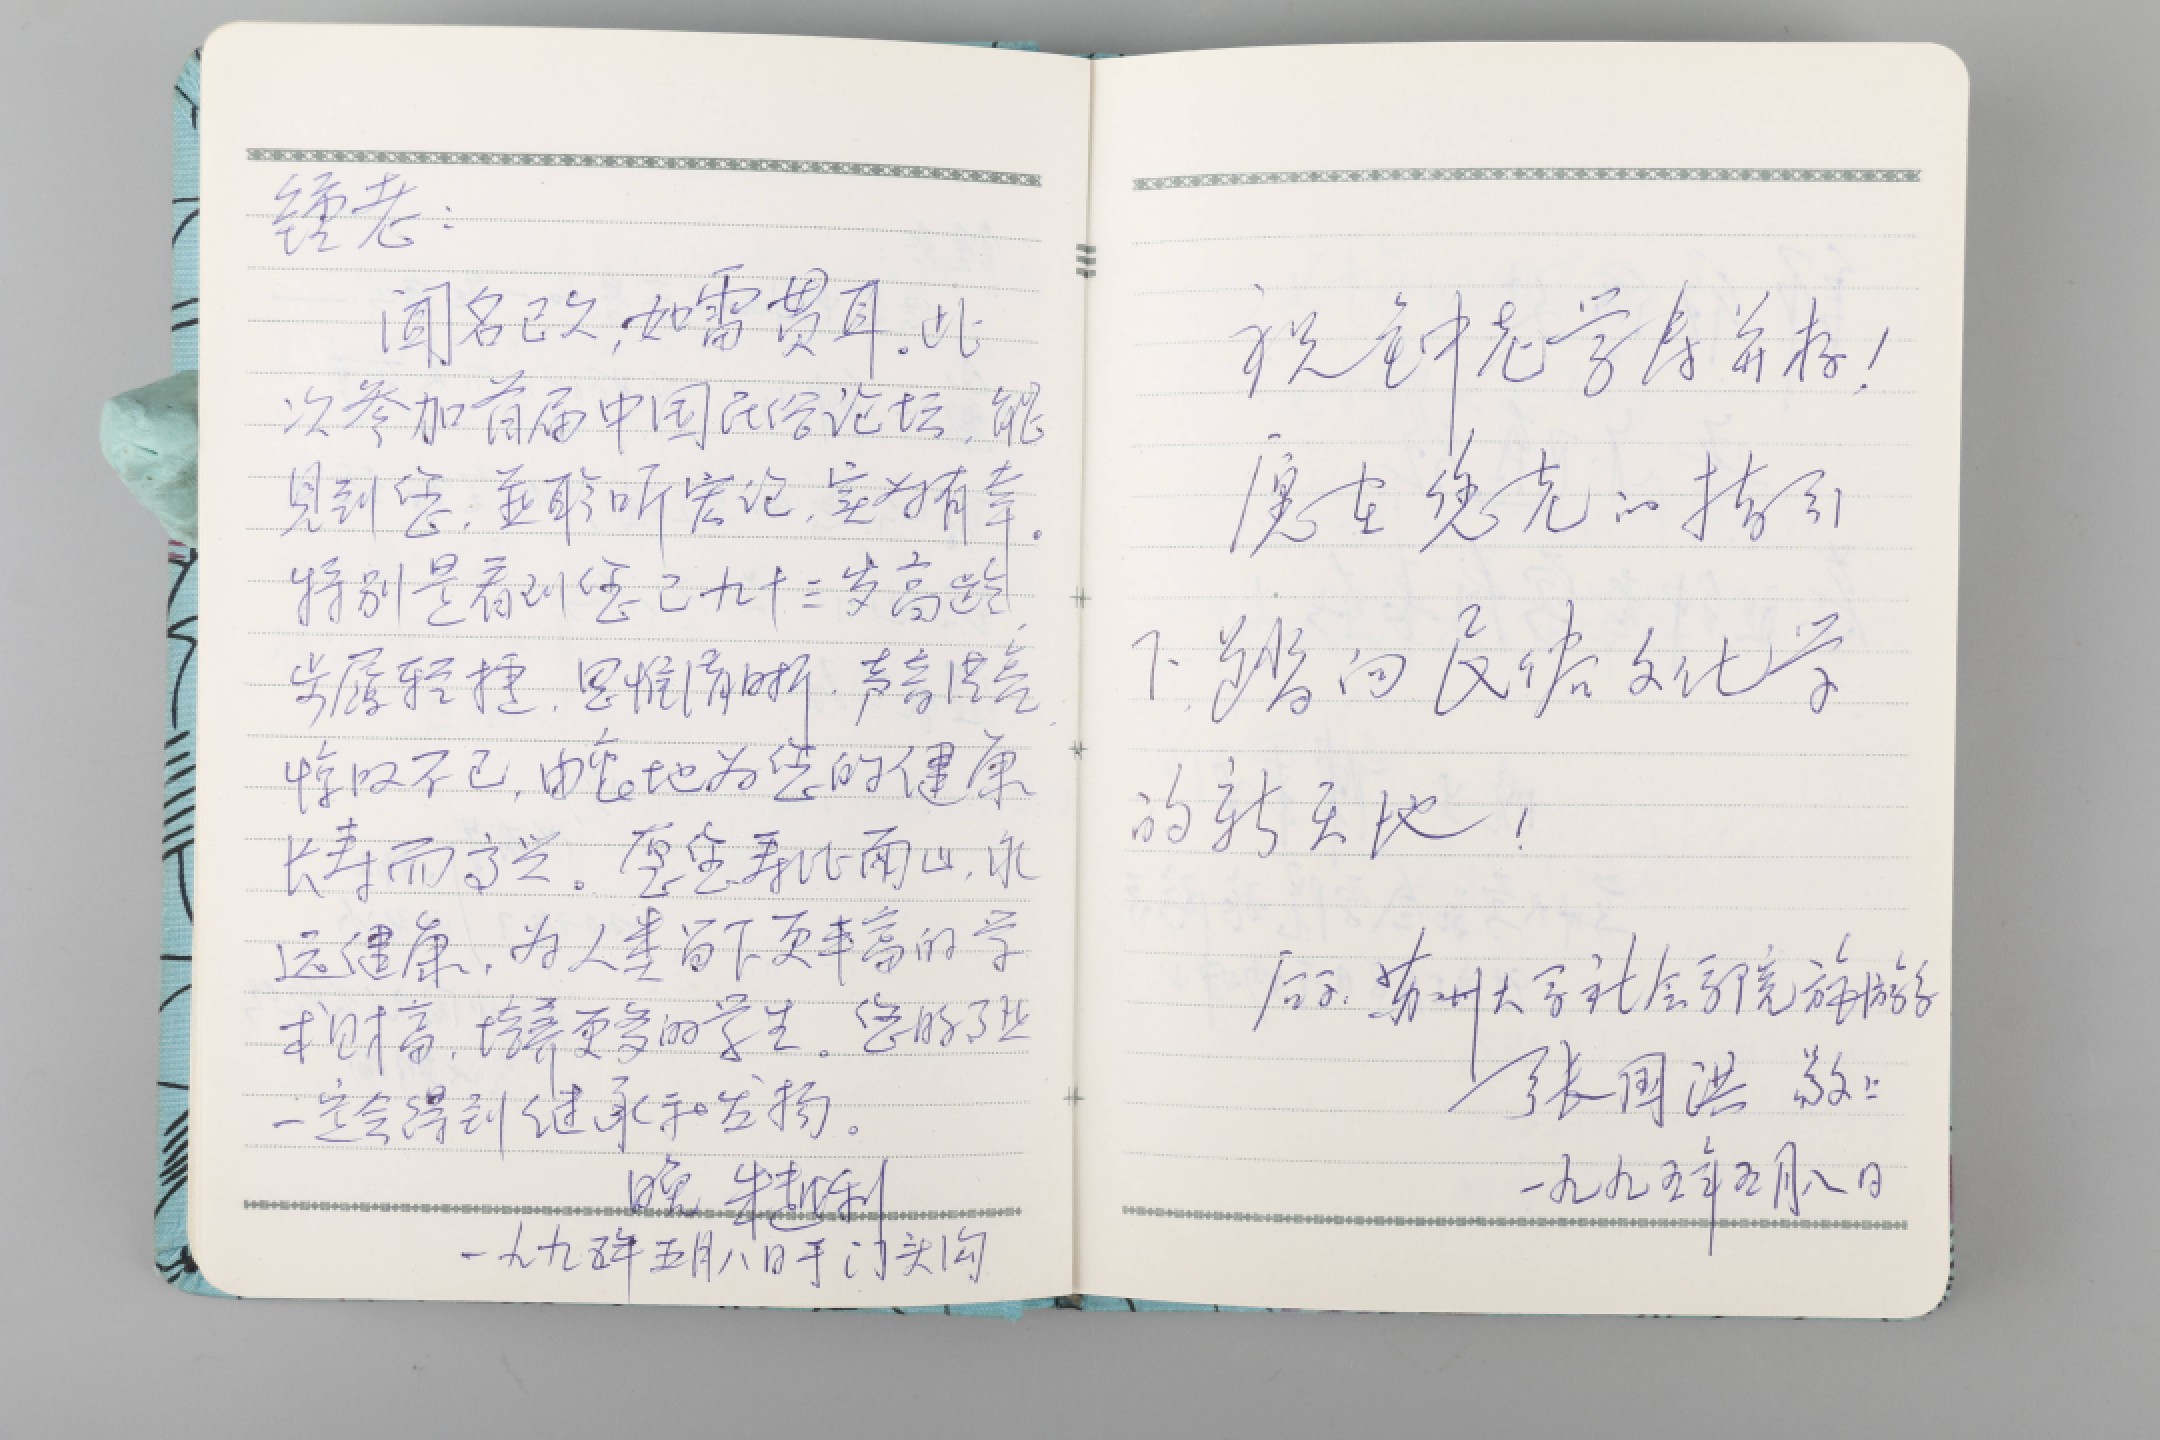 鍾老：
闻名已久，如雷贯耳。此
次参加首届中国民俗论坛，能
见到您，並聆听宏论，实为有幸。
特别是看到您已九十三岁高龄，
步履轻捷，思惟清晰，声音洪亮，
惊叹不已，由衷地为您的健康
长寿而高兴。愿您寿比南山，永
远健康，为人类留下更丰富的学
术财富，培养更多的学生。您的事业
一定会得到继承和发扬。
晚 朱越利
一九九五年五月八日于门头沟
祝钟老学寿并存！
愿在您老的指引
下，踏向民俗文化学
的新天地！
后学 苏州大学社会学院旅游系
张国洪 敬上
一九九五年五月八日